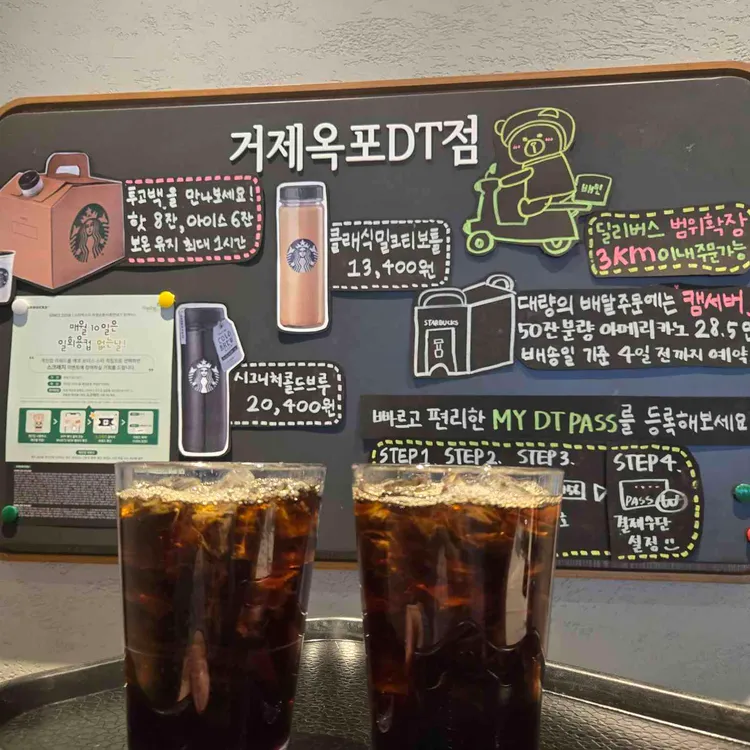 거제옥포DT점
투고백을 만나보세요!
핫 8잔, 아이스 6잔
보온 유지 최대 1시간
클래식밀크티보틀
13,400원
배달
딜리버스 범위확장
3KM이내주문가능
STARBUCKS
대량의 배달주문에는 캠서버
50잔분량 아메리카노 28.5
배송일 기준 4일 전까지 예약
COLD BREW
시그니처콜드브루
20,400원
매월 10일은
일회용컵 없는날!
빠르고 편리한 MY DT PASS를 등록해보세요
STEP1 STEP2. STEP3.
STEP4.
PASS
결제수단
설정